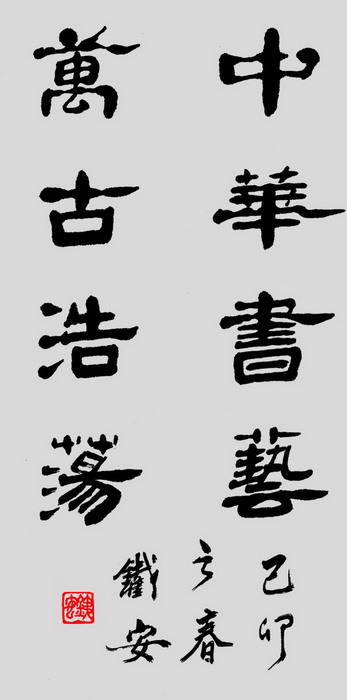 中華書藝
萬古浩蕩
己卯
之春
鐵安